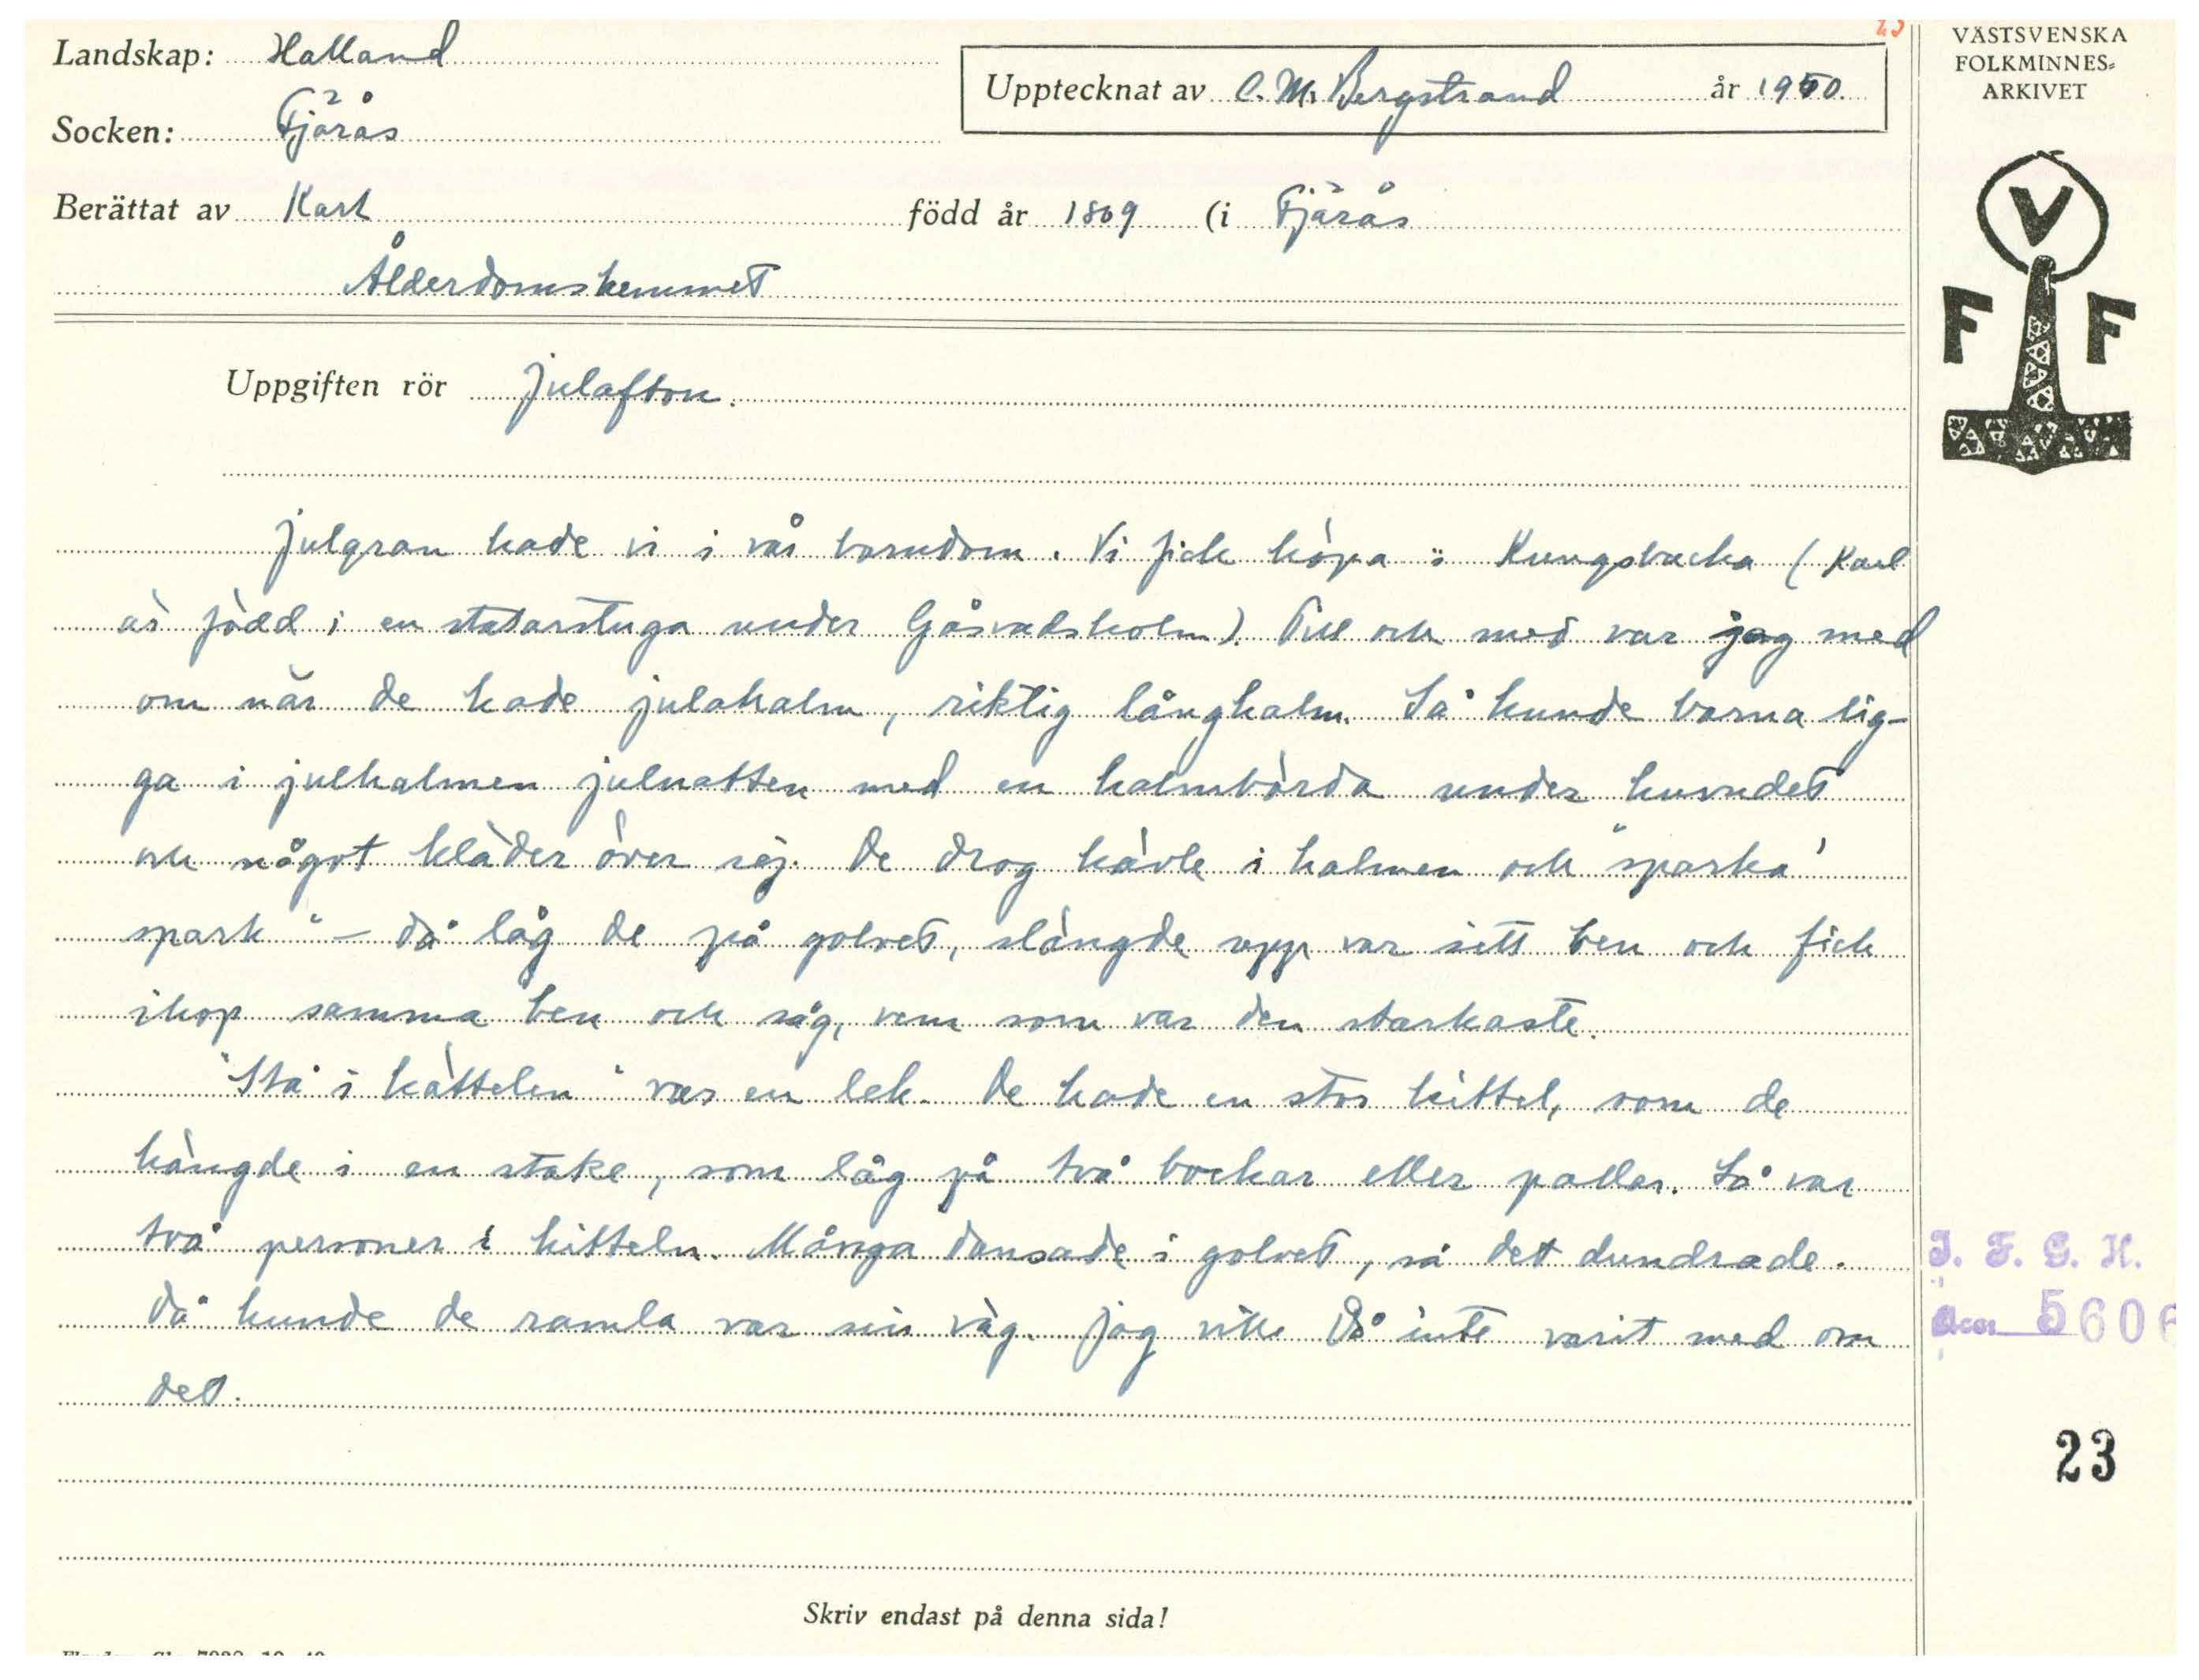 Landskap: Halland
Socken: Fjärås
Upptecknat av C. M. Bergstrand år 1950
VÄSTSVENSKA
FOLKMINNES-
ARKIVET
Berättat av Karl född år 1869 (i Fjärås
Ålderdomshemmet
V
F F
Uppgiften rör Julafton.
Julgran hade vi i vår barndom. Vi fick köpa i Kungsbacka (Karl
är född i en statarstuga under Gåsvadsholm). Till och med var jag med
om när de hade julahalm, riktig långhalm. Så kunde barna lig-
ga i julhalmen julnatten med en halmbörda under huvudet
och något kläder över sej. De drog kävle i halmen och "sparka'
spark" – då låg de på golvet, slängde upp var sitt ben och fick
ihop samma ben och såg, vem som var den starkaste.
"Stå i kättelen" var en lek. De hade en stor kittel, som de
hängde i en stake, som låg på två bockar eller pallar. Så var
två personer i kitteln. Många dansade i golvet, så det dundrade.
Då kunde de ramla var sin väg. Jag ville då inte varit med om
det.
I. F. G. H.
Acc. 5606
23
Skriv endast på denna sida!